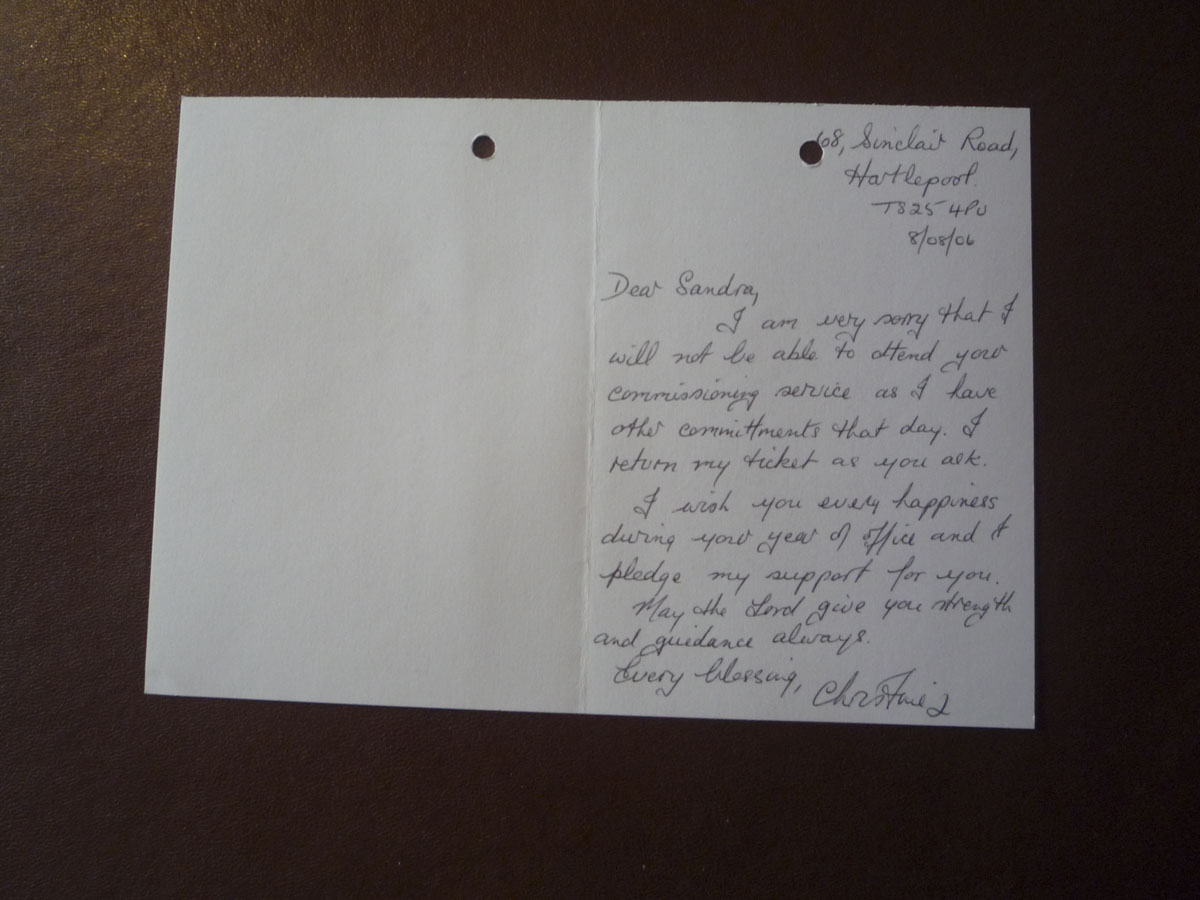 68, Sinclair Road,
Hartlepool.
TS25 4PU
8/08/06
Dear Sandra,
I am very sorry that I
will not be able to attend your
commissioning service as I have
other committments that day. I
return my ticket as you ask.
I wish you every happiness
during your year of office and I
pledge my support for you.
May the Lord give you strength
and guidance always.
Every blessing,
Christine